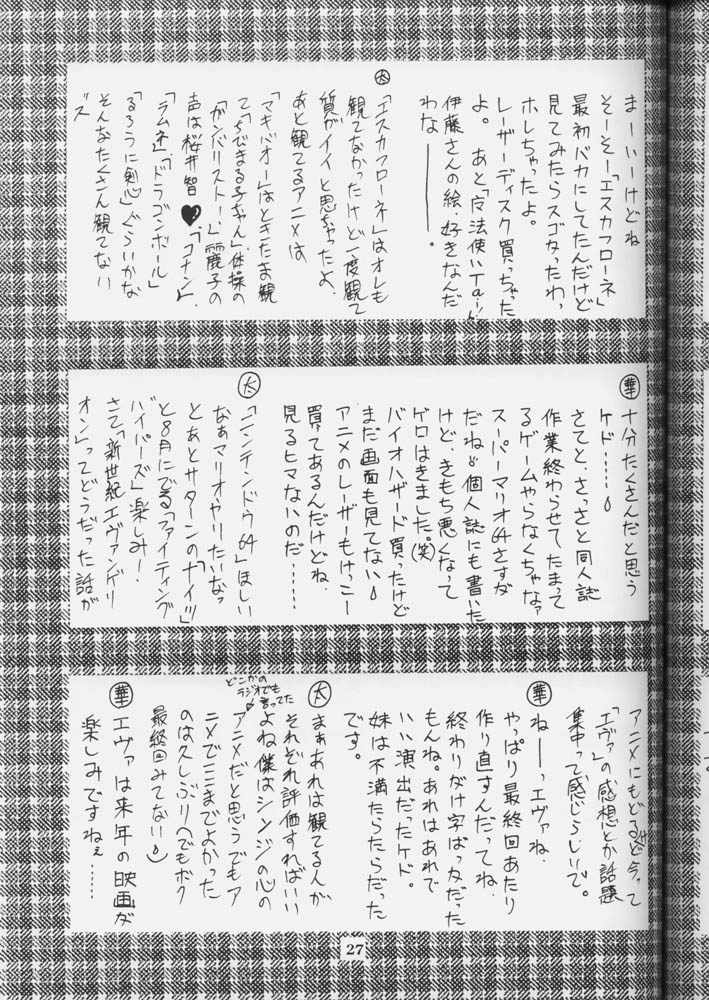 まーいーけどね
そーそー「エスカフローネ」
最初バカにしてたんだけど
見てみたらスゴかったわっ
ホレちゃったよ。
レーザーディスク買っちゃった
よ。あと「魔法使いTai!」
伊藤さんの絵、好きなんだ
わなーーー。
大
「エスカフローネ」はオレも
観てなかったけど一度観て
質がイイと思っちゃったよ、
あと観てるアニメは
「マキバオー」はときたま観
て、「ちびまる子ちゃん」、体操の
「ガンバリスト!」麗子の
声は桜井智♥「コナン」、
「ラムネ」「ドラゴンボール」
「るろうに剣心」ぐらいかな
そんなたくさん観てない
ズ
華
十分たくさんだと思う
ケド……
さてと、さっさと同人誌
作業終わらせてたまって
るゲームやらなくちゃなっ
スーパーマリオ64さすが
だね 個人誌にも書いた
けど、きもち悪くなって
ゲロはきました。(笑)
バイオハザード買ったけど
まだ画面も見てない
アニメのレーザーもけっこー
買ってあるんだけどね、
見るヒマないのだ……
大
「ニンテンドウ64」ほしい
なぁマリオやりたいなっ
とあとサターンの「ナイツ」
と8月にでる「ファイティング
バイパーズ」楽しみー!
さて「新世紀エヴァンゲリ
オン」ってどうだった話が
アニメにもどるけど今って
「エヴァ」の感想とか話題
集中って感じらしいで。
華
ねーーっエヴァね、
やっぱり最終回あたり
作り直すんだってね、
終わりがけ字ばっかだった
もんね。あれはあれで
いい演出だったケド。
妹は不満たらたらだった
です。
大
まぁあれは観てる人が
それぞれ評価すればいい
よね僕はシンジの心の
どこかの
ラジオでも
言ってた
アニメだと思うでもア
ニメでここまでよかった
のは久しぶりへでもボク
最終回みてない
華
エヴァは来年の映画が
楽しみですねぇ……
27